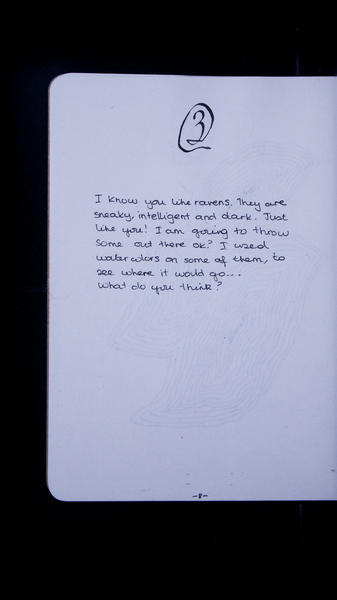 3
I know you like ravens. They are
sneaky, intelligent and dark. Just
like you! I am going to throw
some out there ok? I used
watercolors on some of them, to
see where it would go...
What do you think?
-8-